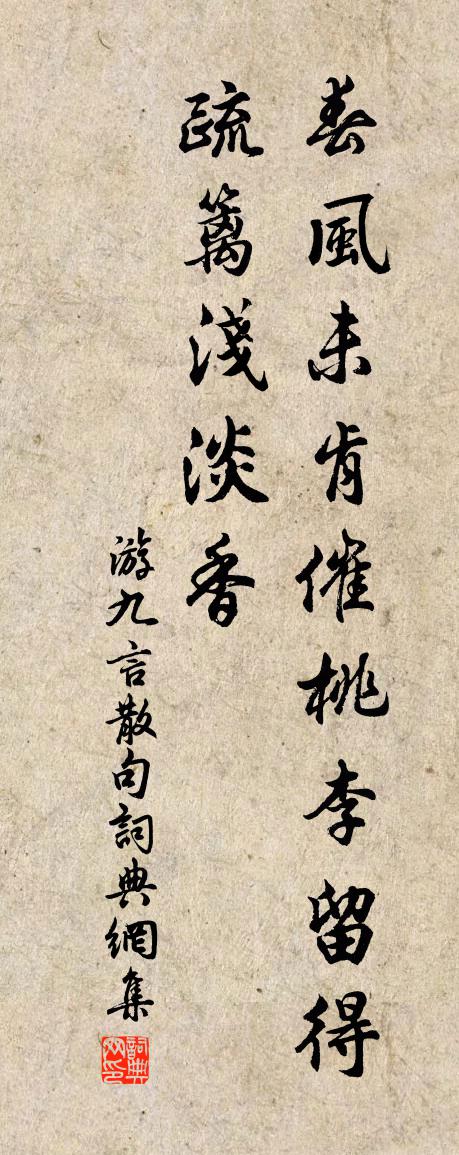 春風未肯催桃李留得
疏籬淺淡香
游九言散句詞典網集
詞典网印